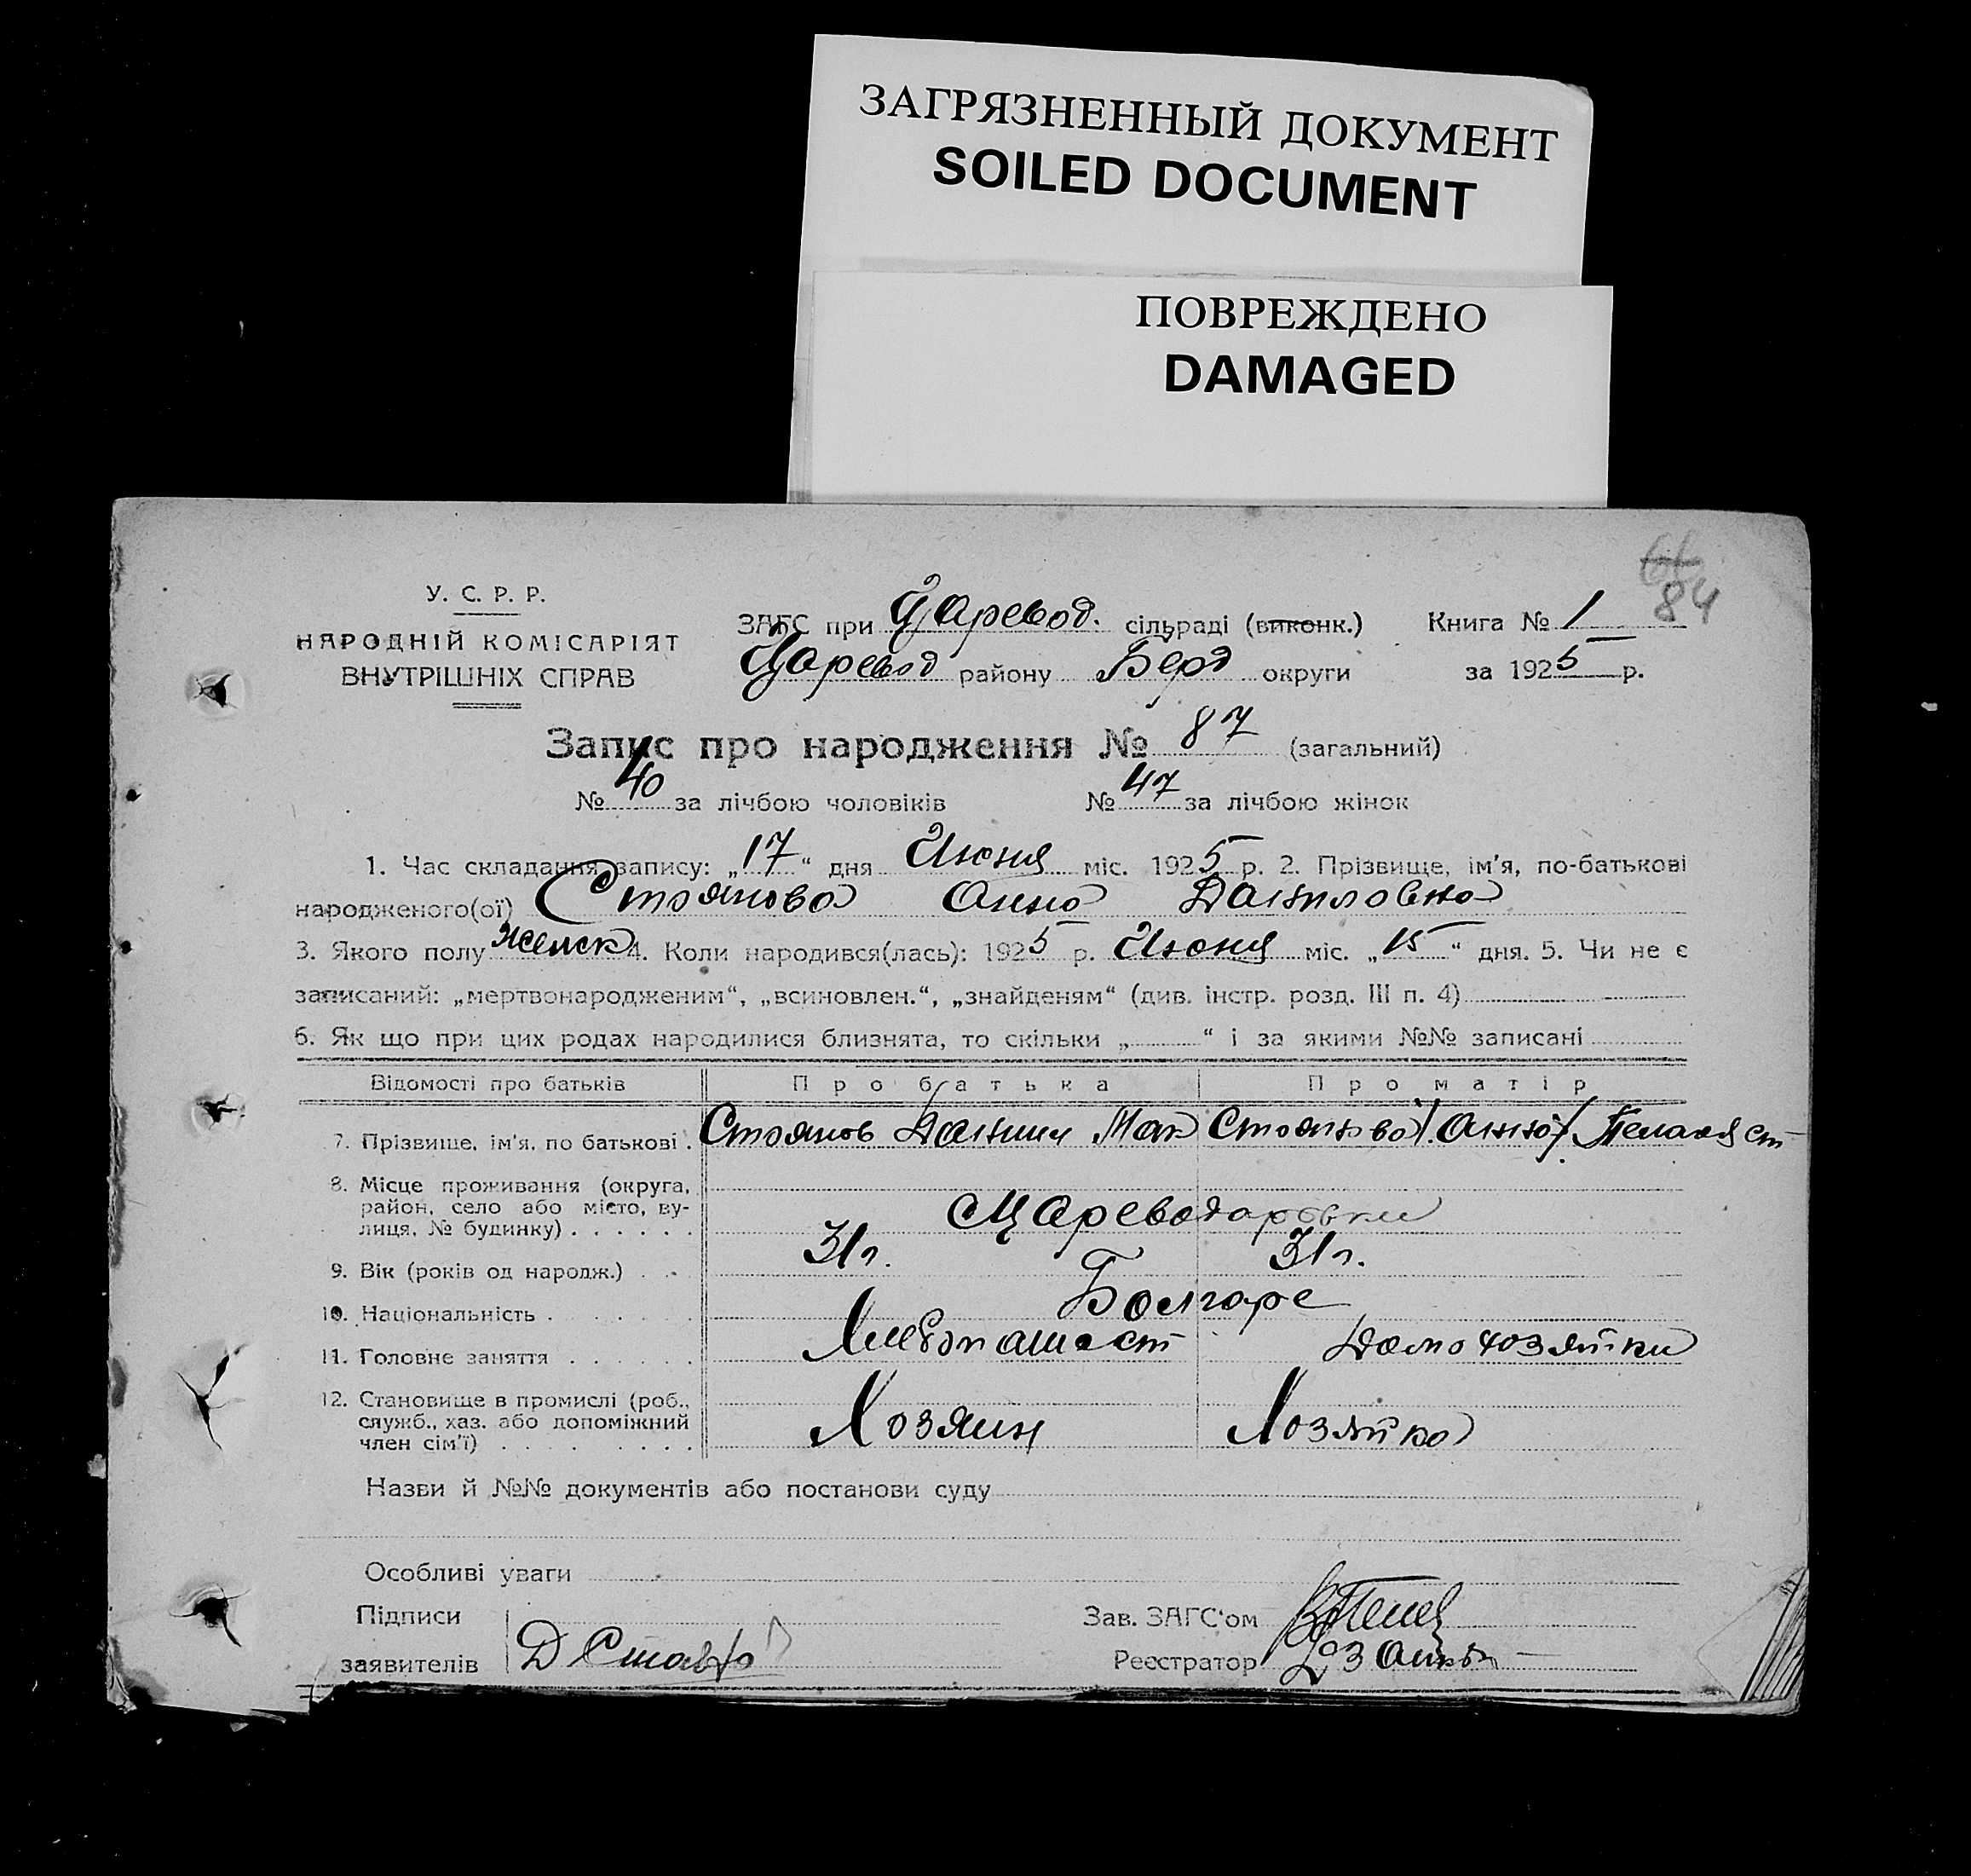 ЗАГРЯЗНЕННЫЙ ДОКУМЕНТ
SOILED DOCUMENT
ПОВРЕЖДЕНО
DAMAGED
84
У. С. Р. Р.
НАРОДНІЙ КОМІСАРІЯТ
ВНУТРІШНІХ СПРАВ
ЗАГС при Царевод. сільраді (виконк.) Книга № 1
Царевод району Берд округи за 1925 р.
Запис про народження № 87 (загальний)
№ 40 за лічбою чоловіків № 47 за лічбою жінок
1. Час складання запису: „17“ дня Июня міс. 1925 р. 2. Прізвище, ім'я, по-батькові
народженого(ої) Стоянова Анна Даниловна
3. Якого полу Женск 4. Коли народився(лась): 1925 р. Июня міс. „15“ дня. 5. Чи не є
записаний: „мертвонародженим“, „всиновлен.“, „знайденям“ (див. інстр. розд. III п. 4)
6. Як що при цих родах народилися близнята, то скільки „ “ і за якими №№ записані
Відомості про батьків Про батька Про матір
7. Прізвище, ім'я, по батькові . Стоянов Данил Мак Стоянова (Анна) Пелагея Ст
8. Місце проживання (округа,
район, село або місто, ву-
лиця, № будинку) . . . . . . Цареводаровки
9. Вік (років од народж.) . . . 31 г. 31 г.
10. Національність . . . . . . . Болгаре
11. Головне заняття . . . . . . Хлебопашест Домохозяйки
12. Становище в промислі (роб.,
служб., хаз. або допоміжний
член сім'ї) . . . . . . . . . Хозяин Хозяйка
Назви й №№ документів або постанови суду
Особливі уваги
Підписи Зав. ЗАГС'ом
заявителів Д Реєстратор